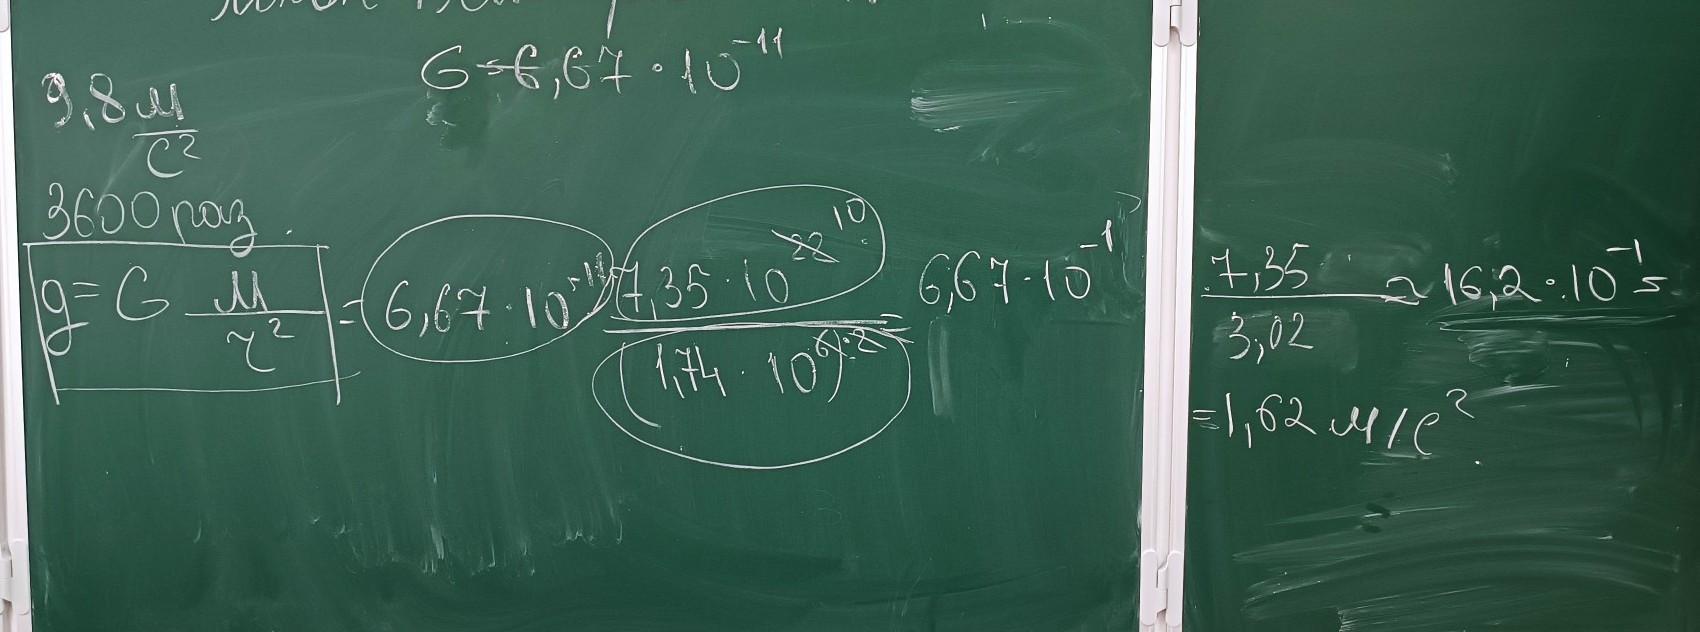 G = 6,67 · 10⁻¹¹
9,8 м/с²
3600 раз.
g = G М/r² = 6,67 · 10⁻¹¹ 7,35 · 10²² ¹⁰/(1,74 · 10⁶)·² = 6,67 · 10⁻¹ 7,35/3,02 ≈ 16,2 · 10⁻¹ =
= 1,62 м/с²